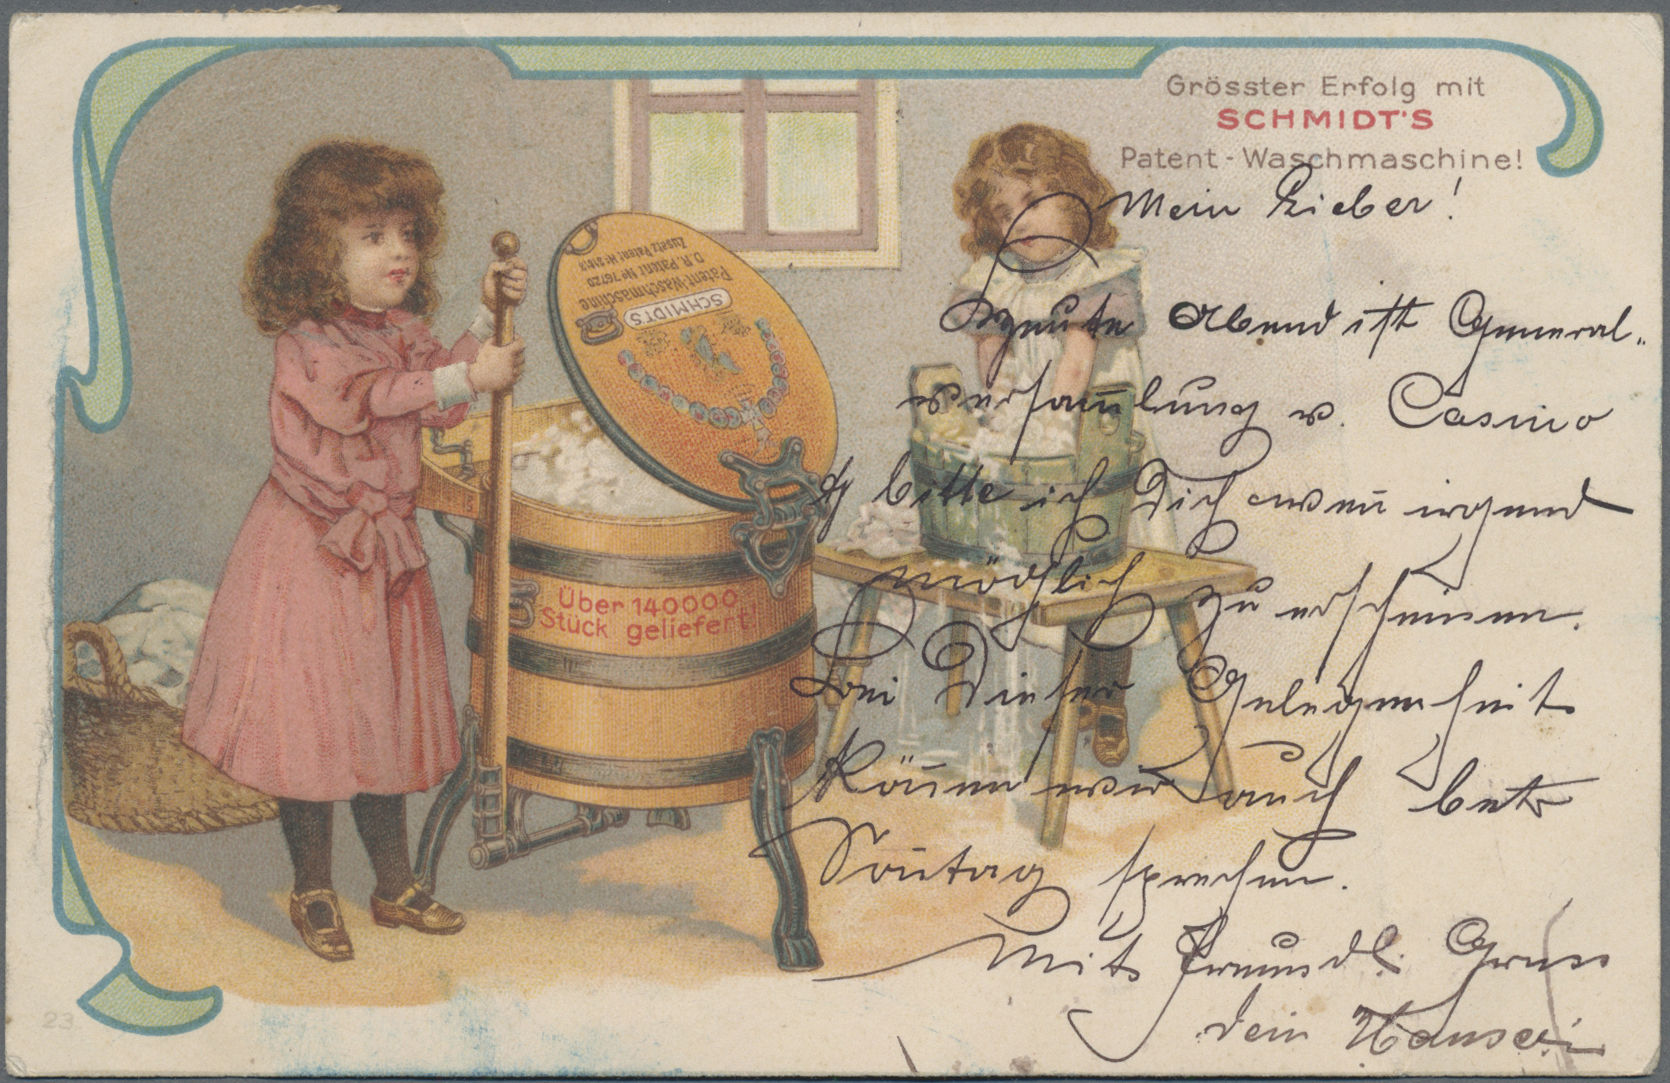 Grösster Erfolg mit
SCHMIDT'S
Patent-Waschmaschine!
SCHMIDT'S
Patent-Waschmaschine
D. R. Patent No 76720
Zusatz Patent
Über 140000
Stück geliefert!
Mein Lieber!
Heute Abend ist General-
versam̄lung v. Casino
bitte ich Dich wen̄ irgend
möglich zu erscheinen.
Bei dieser Gelegenheit
kön̄en wir auch betr.
Son̄tag sprechen.
Mit Freundl. Gruss
dein
23